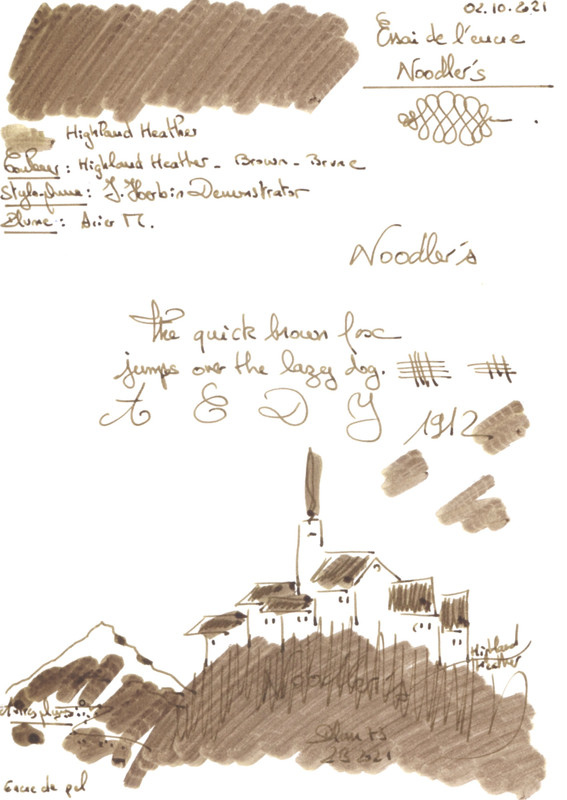 02.10.2021
Essai de l'encre
Noodler's
Highland Heather
Couleur : Highland Heather - Brown - Brune
Stylo-plume : J. Herbin Demonstrator
Plume : Acier M.
Noodler's
the quick brown fox
jumps over the lazy dog.
A E D Y 1912
Highland
Heather
Noodler's